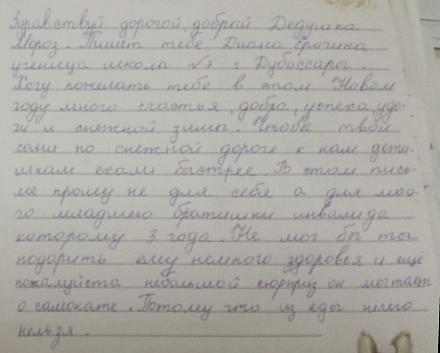 Здравствуй дорогой, добрый Дедушка
Мороз. Пишет тебе Диана
ученица школа №7 г. Дубоссары.
Хочу пожелать тебе в этом Новом
году много счастья, добра, успеха, уда-
чи и снежной зимы. Чтобы твои
сани по снежной дороге к нам дети-
шкам ехали быстрее. В этом пись-
ме прошу не для себя а для мое-
го младшего братишки инвалида
которому 3 года. Не мог бы ты
подарить ему немного здоровья и ещё
пожалуйста небольшой сюрприз он мечтает
о самокате. Потому что из еды нечего
нельзя.